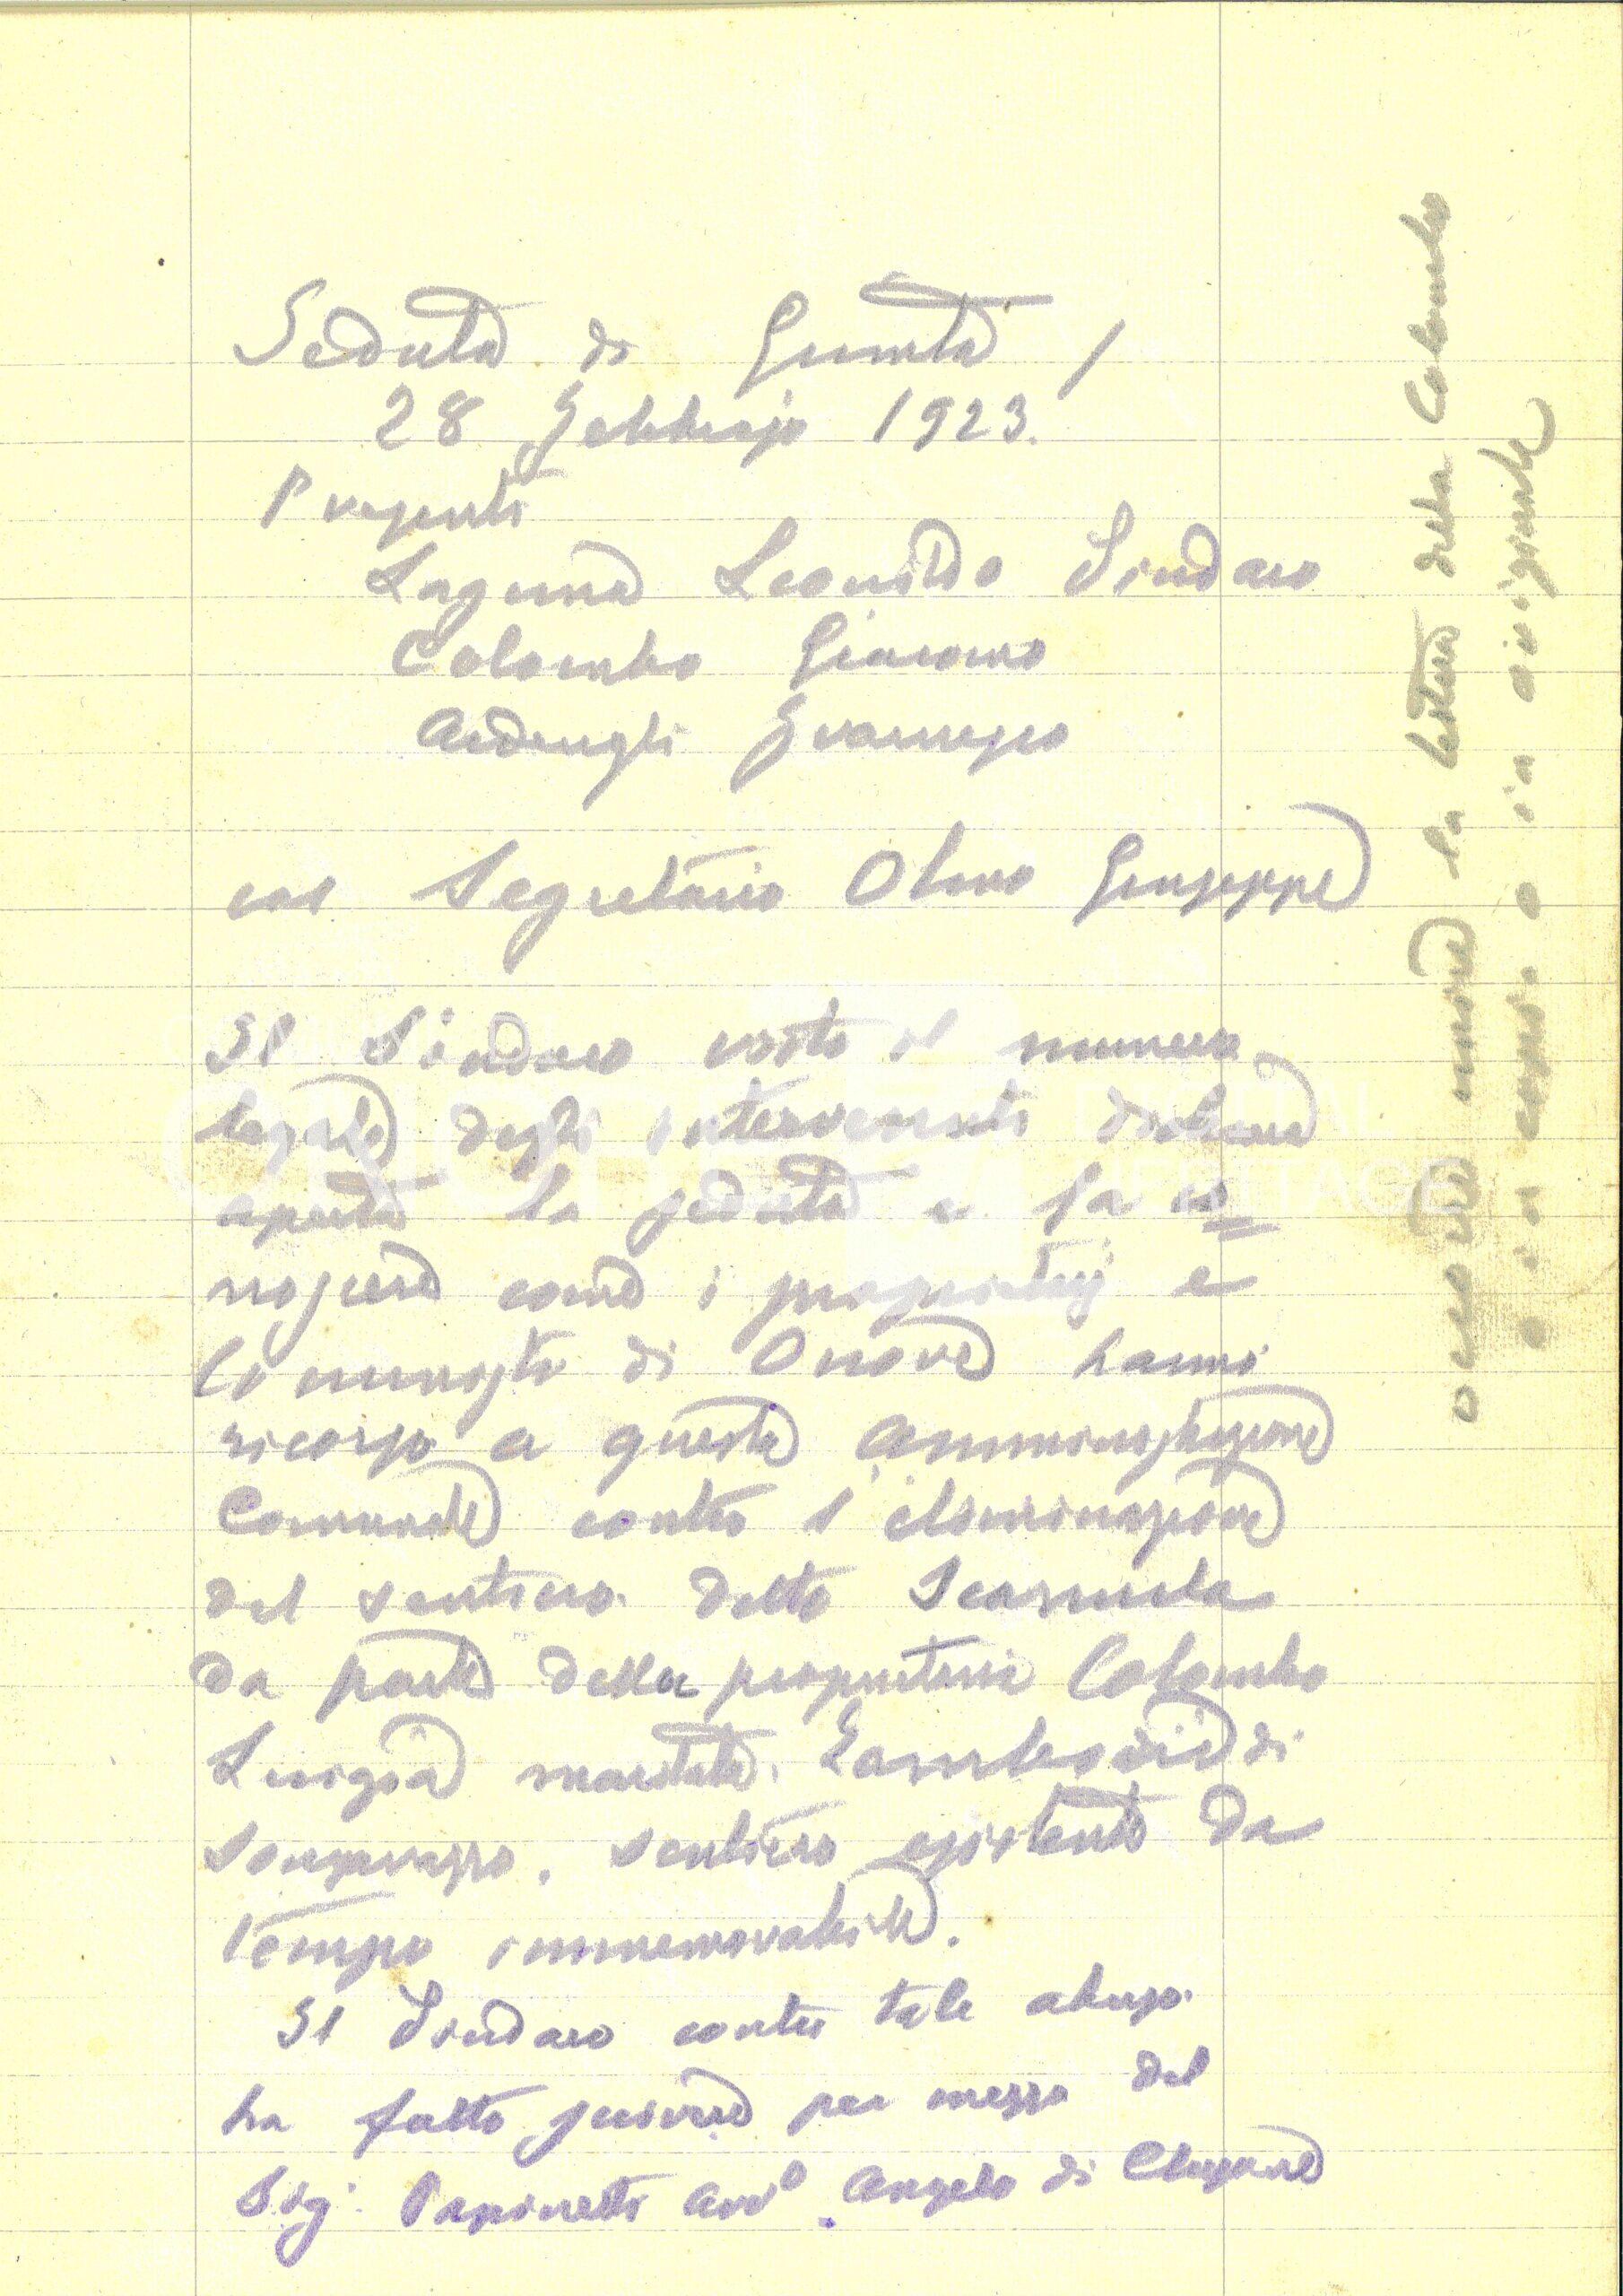 Seduta di Giunta /
28 Febbrajo 1923.
Presenti
Laguna Leonildo Sindaco
Colombo Giacomo
Ardenghi Francesco
col Segretario Olmo Giuseppe
Il Sindaco visto il numero
legale degli intervenuti dichiara
aperta la seduta e fa co=
noscere come i proprietarj e
Comunisti di Onore hanno
ricorso a questa Amministrazione
Comunale contro l'eliminazione
del sentiero detto
da parte della proprietaria Colombo
Luigia maritata di
Songavazzo. sentiero esistente da
tempo immemorabile.
Il Sindaco contro tale abuso
ha fatto scrivere per mezzo del
Sig. avvo. Angelo di Clusone
la lettera della Colombo
o in copia o in originale